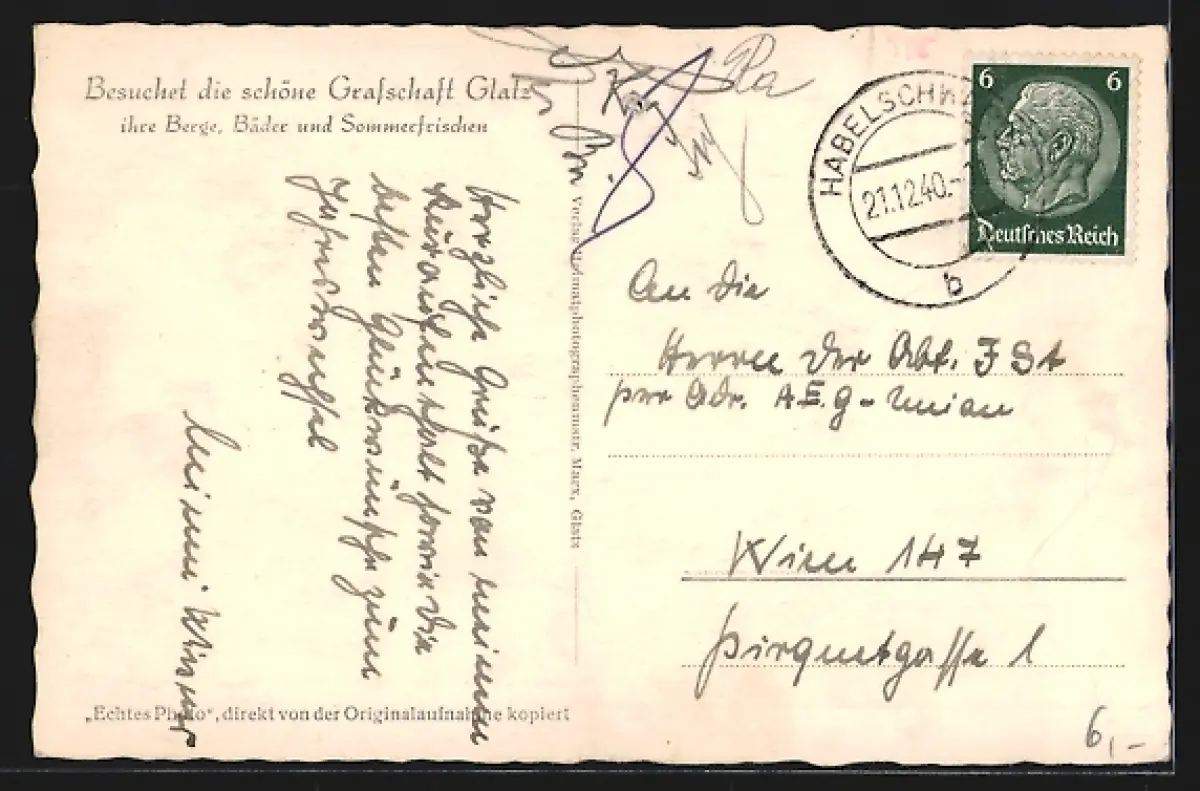 Besuchet die schöne Grafschaft Glatz
ihre Berge, Bäder und Sommerfrischen
Herzliche Grüße von meinem
Kuraufenthalt sowie die
besten Glückwünsche zum
Jahreswechsel
„Echtes Photo“, direkt von der Originalaufnahme kopiert
Verlag Heimatphotographenmstr. Marx, Glatz
HABELSCHW
21.12.40.-
b
6 6
Deutsches Reich
An die
Herren der Abt. J St
per Adr. A.E.G-Union
Wien 147
Pirquetgasse 1
6,-